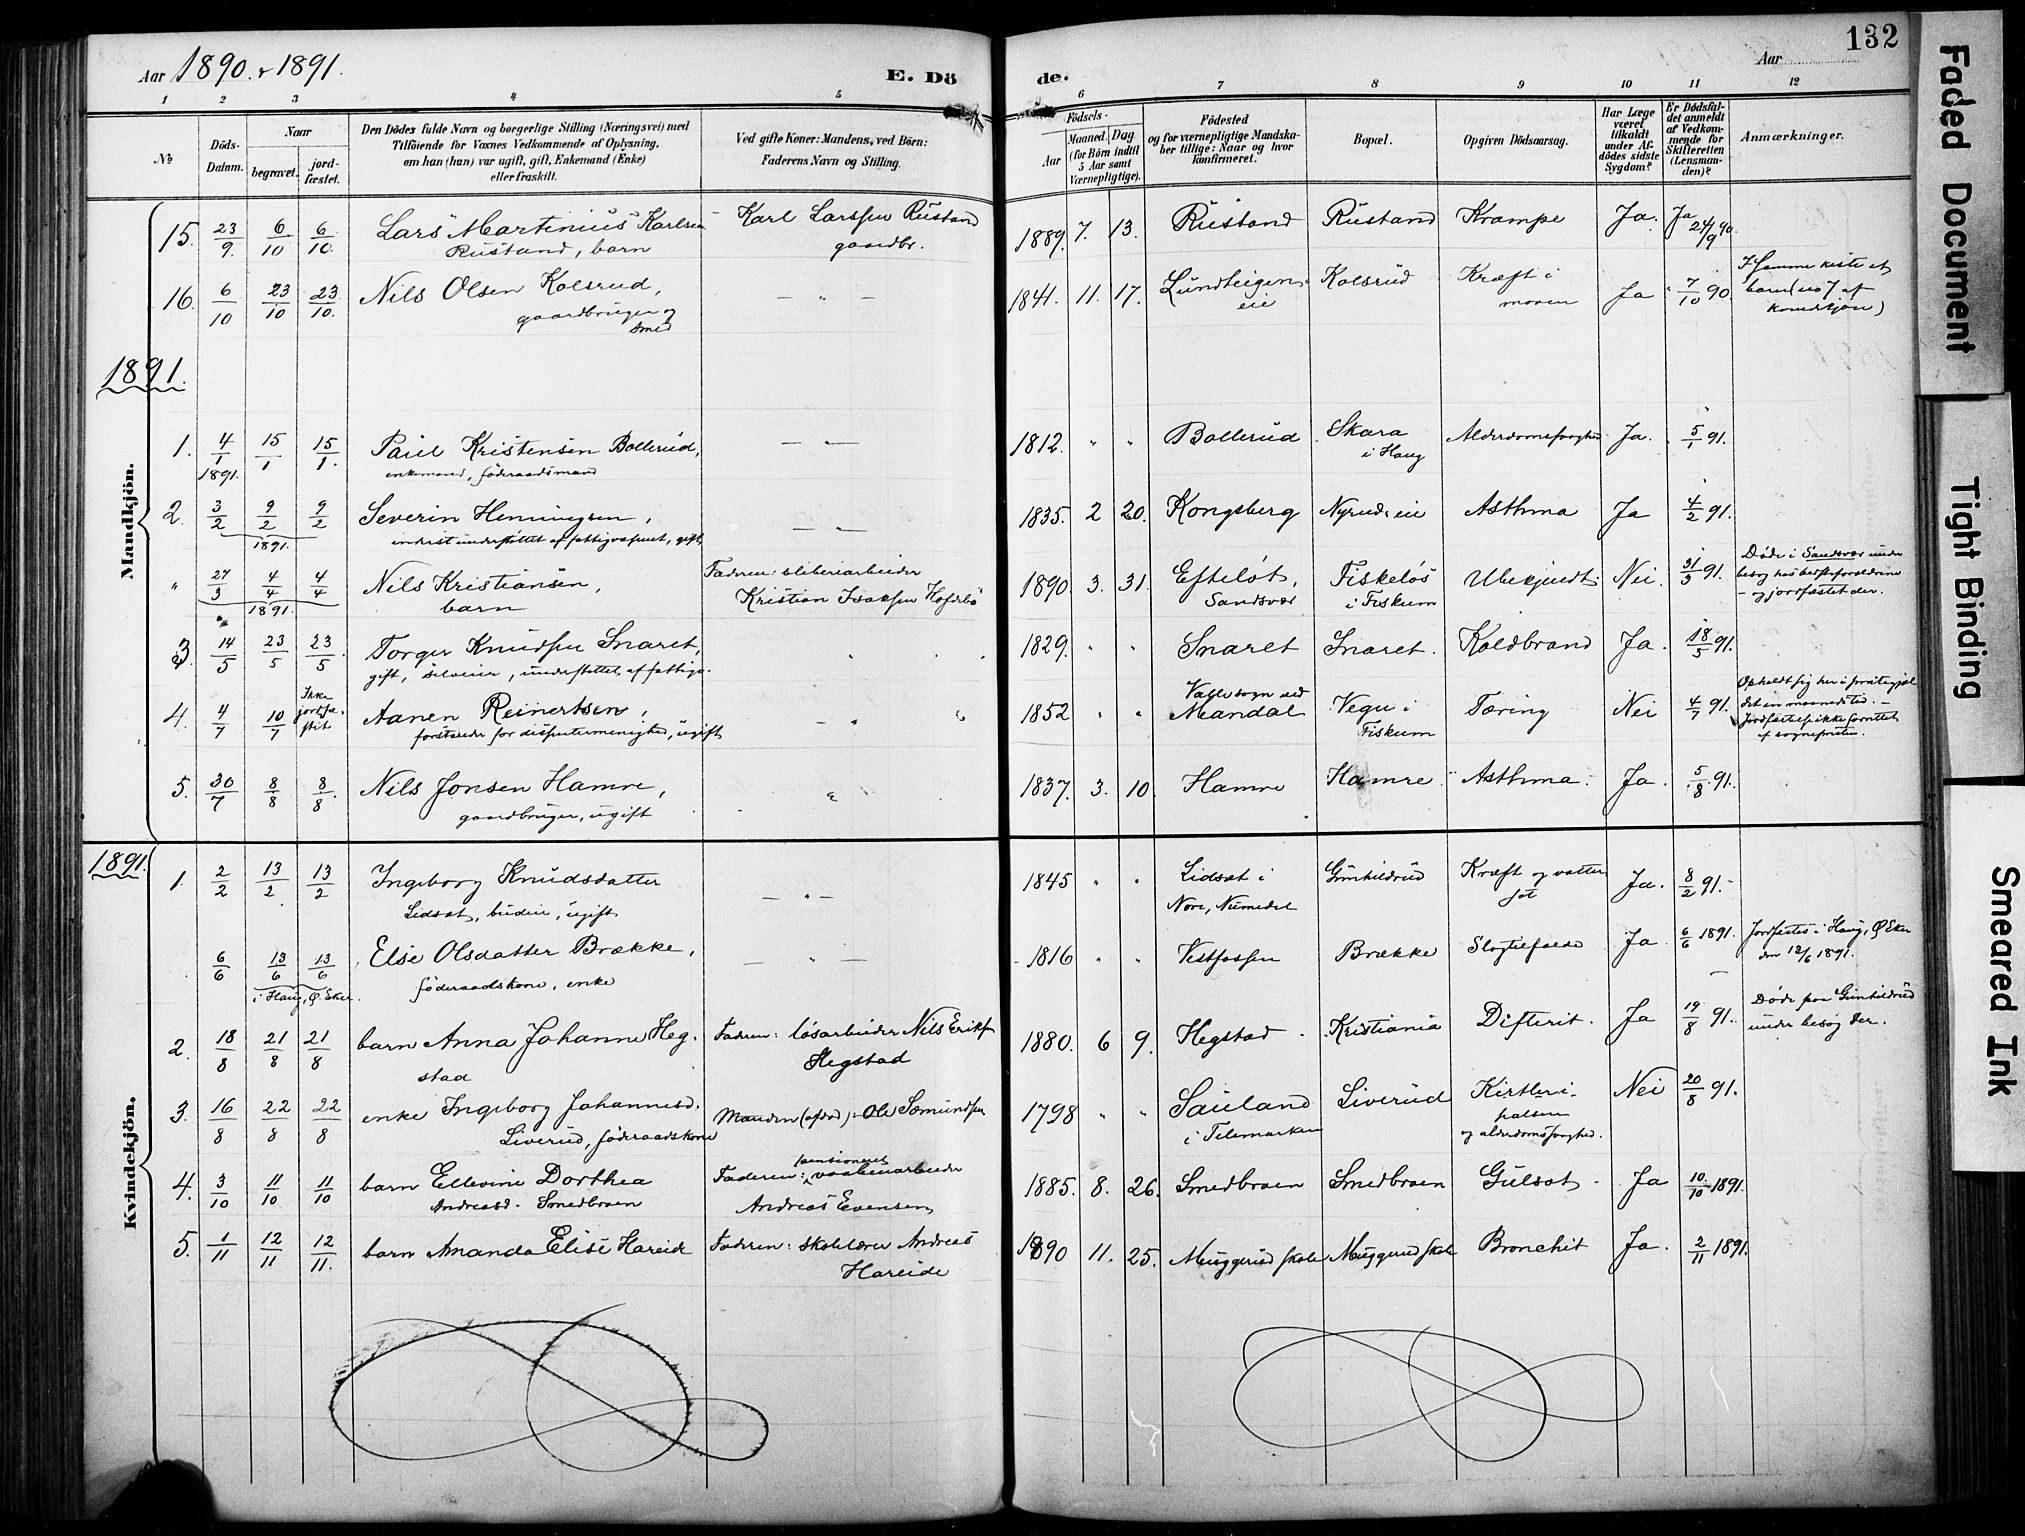 132
Aar 1890 & 1891.
E. Döde.
Aar
1 2 3 4 5 6 7 8 9 10 11 12
No
Döds-Datum.
Naar
begravet.
jord-fæstet.
Den Dödes fulde Navn og borgerlige Stilling (Næringsvei) med
Tilföiende for Voxnes Vedkommende af Oplysning,
om han (hun) var ugift, gift, Enkemand (Enke)
eller fraskilt.
Ved gifte Koner: Mandens, ved Börn:
Faderens Navn og Stilling.
Födsels-
Aar
Maaned. Dag.
(for Börn indtil
5 Aar samt
Værnepligtige).
Födested
og for værnepligtige Mandska-
ber tillige: Naar og hvor
konfirmeret.
Bopæl.
Opgiven Dödsaarsag.
Har Læge
været
tilkaldt
under Af-
dödes sidste
Sygdom?
Er Dödsfal-
det anmeldt
af Vedkom-
mende for
Skifteretten
(Lensman-
den)?
Anmærkninger.
Mandkjön.
15. 23/9. 6/10 6/10. Lars Martinius Karlsen Karl Larssen Rustand 1889. 7. 13. Rustand Rustand Krampe Ja. Ja 24/9 90.
Rustand, barn gaardbr.
16. 6/10 23/10 23/10. Nils Olsen Kolsrud, — " — 1841. 11. 17. Lundteigen- Kolsrud Kræft i Ja 7/10 90. I samme kiste et
gaardbruger og eie maven barn (no 7 af
smed kvindekjön)
1891.
1. 4/1 15/1 15/1. Paul Kristensen Bollerud, — " — 1812. " " Bollerud Skara Alderdomssvaghed Ja. 5/1 91.
1891. enkemand, föderaadsmand i Haug
2. 3/2 9/2 9/2 Severin Henningsen, — " — 1835. 2 20. Kongsberg Nyruds eie Asthma Ja 4/2 91.
1891. inderst understöttet af fattigvæsenet, gift,
" 27/3 4/4 4/4 Nils Kristiansen, Faderen: sliberiarbeider 1890. 3. 31. Efteløt, Fiskeløs Ubekjendt. Nei. 31/3 91. Døde i Sandsvær under
1891. barn Kristian Isaksen Sandsvær i Fiskum besøg hos bedsteforældrene
– og jordfæstet der.
3. 14/5 23/5 23/5. Torger Knudsen Snaret, " 1829. " " Snaret Snaret. Koldbrand Ja. 18/5 91.
gift, understöttet af fattigv.
4. 4/7 10/7 Ikke jordfæstet Aanen Reinertsen, – " " 1852 " " Valle sogn ved Vegu i Tæring Nei 4/7 91. Opholdt sig her i præstegjæl
forstander for dissentermenighed, ugift Mandal Fiskum det en maaneds tid. –
Jordfæstelse ikke forrettet
af sognepresten.
5. 30/7 8/8 8/8. Nils Jonsen Hamre, " 1837. 3. 10. Hamre Hamre Asthma. Ja. 5/8 91.
gaardbruger, ugift
Kvindekjön.
1891.
1. 2/2 13/2 13/2 Ingeborg Knudsdatter — " — 1845 " " Lidsæt i Gunhildrud Kræft og vatter Ja. 8/2 91.
Lidsæt, budeie, ugift Nore, Numedal sot
6/6 13/6 13/6 Else Olsdatter Brække, — " — 1816 " " Vestfossen Brække Slagtilfælde Ja 6/6 1891. Jordfæstes i Haug, Ø. Eker
i Haug, Ø. Eker. föderaadskone, enke den 13/6 1891.
2. 18/8 21/8 21/8 barn Anna Johanne Heg- Faderen: løsarbeider Nils Eriks. 1880. 6 9. Hegstad Kristiania Difterit. Ja 19/8 91. Døde paa Gunhildrud
stad Hegstad under besøg der.
3. 16/8 22/8 22/8 enke Ingeborg Johannesd. Manden (afdød): Ole Sæmundsen 1798 " " Sauland Liverud Kirtler i Nei 20/8 91.
Liverud, föderaadskone i Telemarken halsen
og alderdomssvaghed.
4. 3/10 11/10 11/10 barn Ellevine Dorthea Faderen: pensioneret vaabenarbeider 1885. 8. 26. Smedbroen Smedbroen Gulsot Ja 10/10 1891.
Andreasd. Smedbroen Andreas Evensen
5. 1/11 12/11 12/11. barn Amanda Elise Hareide Faderen: skolelærer Andreas 1890 11. 25. Muggerud skole Muggerud skole Bronchit Ja. 2/11 1891.
Hareide
Faded Document
Tight Binding
Smeared Ink